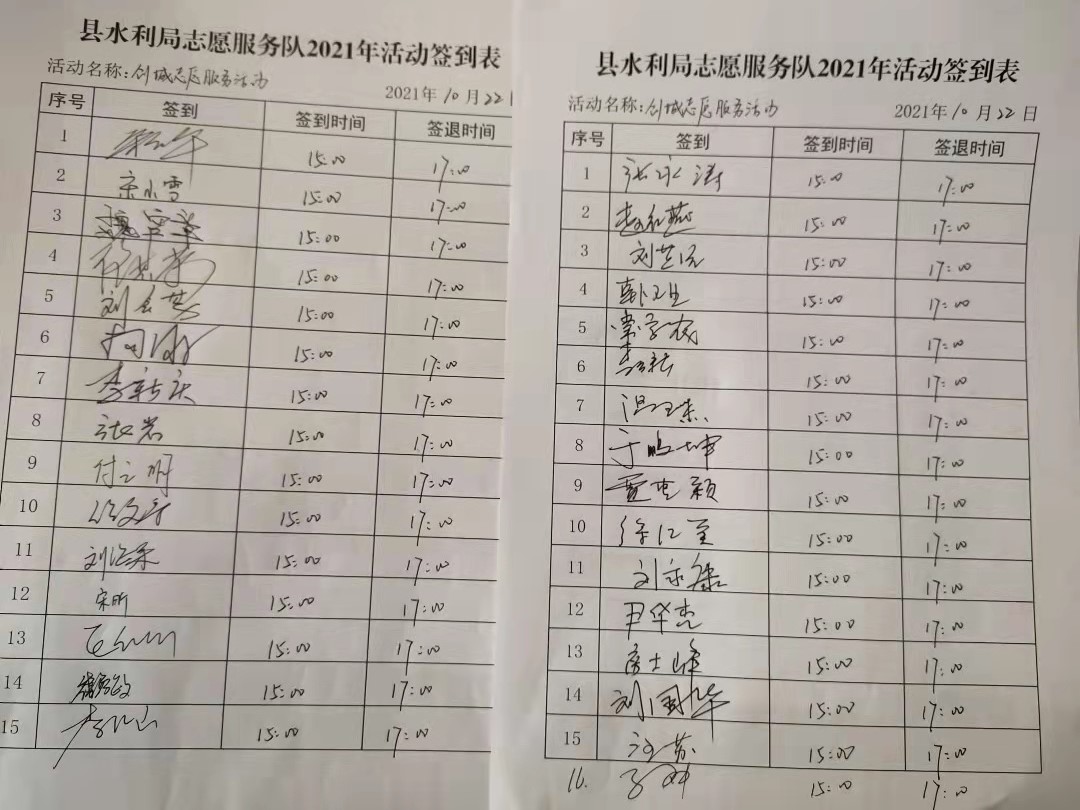 县水利局志愿服务队2021年活动签到表
活动名称:创城志愿服务活动
2021年10月22日
序号 签到 签到时间 签退时间
1 15:00 17:00
2 宋小雪 15:00 17:00
3 15:00 17:00
4 15:00 17:00
5 15:00 17:00
6 15:00 17:00
7 李新庆 15:00 17:00
8 张岩 15:00 17:00
9 付立明 15:00 17:00
10 15:00 17:00
11 15:00 17:00
12 宋昕 15:00 17:00
13 15:00 17:00
14 15:00 17:00
15 15:00 17:00
县水利局志愿服务队2021年活动签到表
活动名称:创城志愿服务活动
2021年10月22日
序号 签到 签到时间 签退时间
1 张永涛 15:00 17:00
2 赵红燕 15:00 17:00
3 15:00 17:00
4 韩卫生 15:00 17:00
5 常学成 15:00 17:00
6 15:00 17:00
7 15:00 17:00
8 于鹏坤 15:00 17:00
9 15:00 17:00
10 15:00 17:00
11 15:00 17:00
12 尹华杰 15:00 17:00
13 15:00 17:00
14 刘国华 15:00 17:00
15 15:00 17:00
16. 15:00 17:00